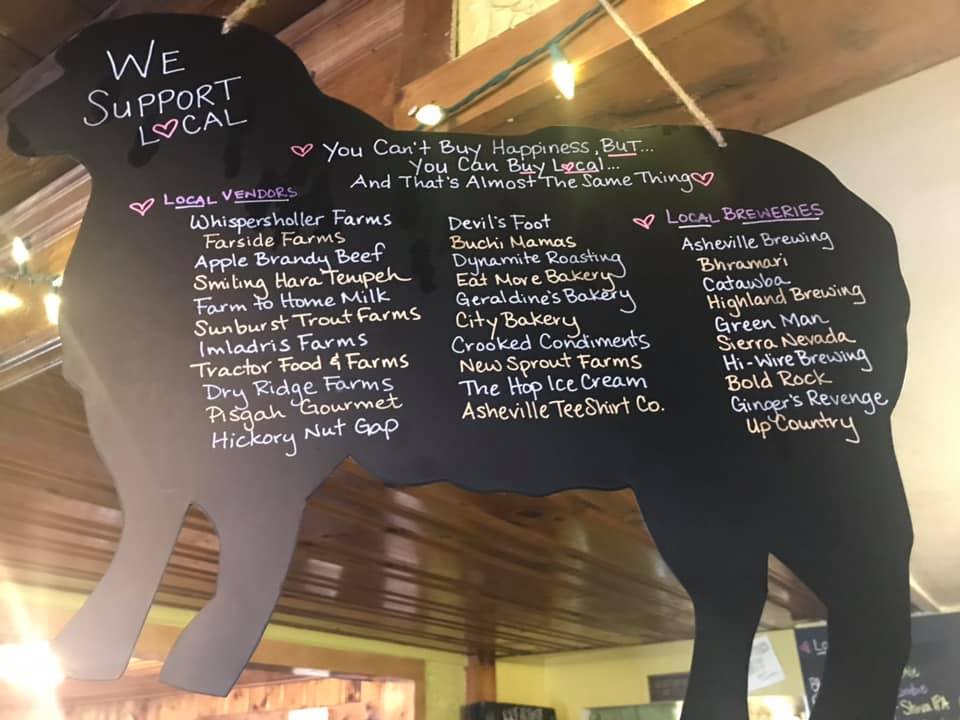 We
Support
Local
You Can't Buy Happiness, But...
You Can Buy Local...
And That's Almost The Same Thing
Local Vendors
Whispersholler Farms
Farside Farms
Apple Brandy Beef
Smiling Hara Tempeh
Farm to Home Milk
Sunburst Trout Farms
Imladris Farms
Tractor Food & Farms
Dry Ridge Farms
Pisgah Gourmet
Hickory Nut Gap
Devil's Foot
Buchi Mamas
Dynamite Roasting
Eat More Bakery
Geraldine's Bakery
City Bakery
Crooked Condiments
New Sprout Farms
The Hop Ice Cream
Asheville Tee Shirt Co.
Local Breweries
Asheville Brewing
Bhramari
Catawba
Highland Brewing
Green Man
Sierra Nevada
Hi-Wire Brewing
Bold Rock
Ginger's Revenge
Up Country